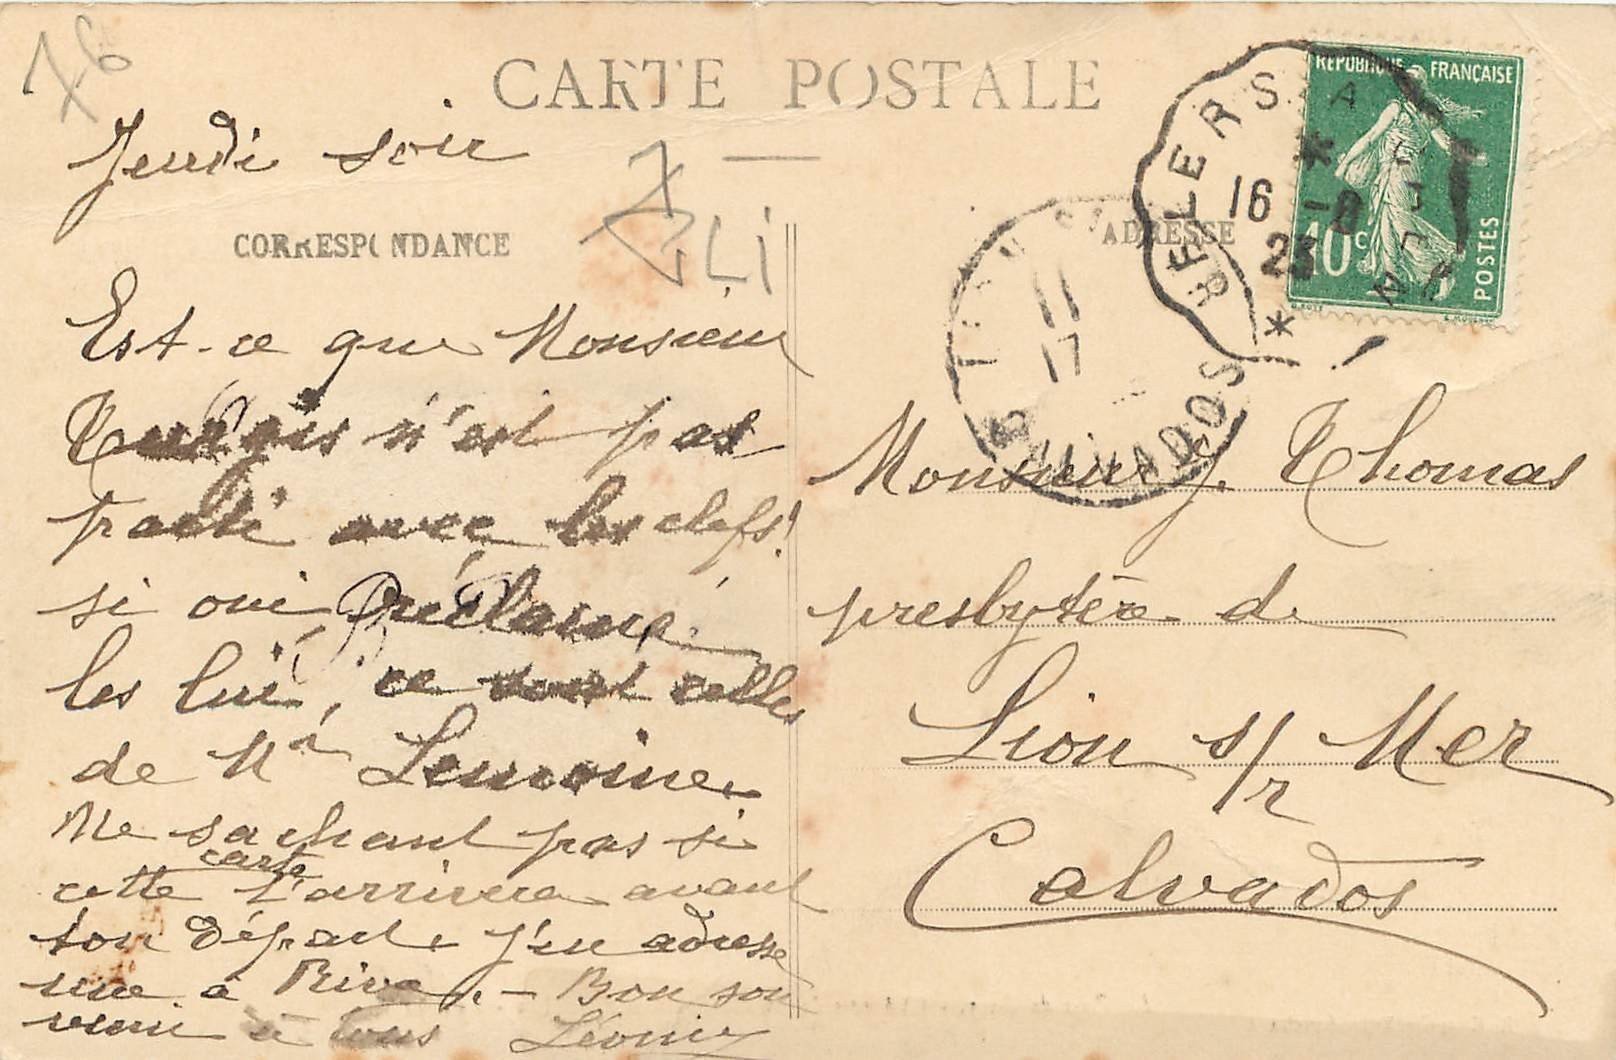 76
CARTE POSTALE
Jeudi soir
CORRESPONDANCE
ADRESSE
Est-ce que Monsieur
Turgis n'est pas
parti avec les clefs!
si oui réclame
les lui, ce sont celles
de Mr Lemoine.
Ne sachant pas si
cette carte t'arrivera avant
ton départ j'en adresse
une à Riva. - Bon sou
venir à tous Léonie
REPUBLIQUE FRANÇAISE
10c
POSTES
FLERS A
16 -8
23
11
17
CALVADOS
Monsieur J. Thomas
presbytère de
Lion s/r Mer
Calvados